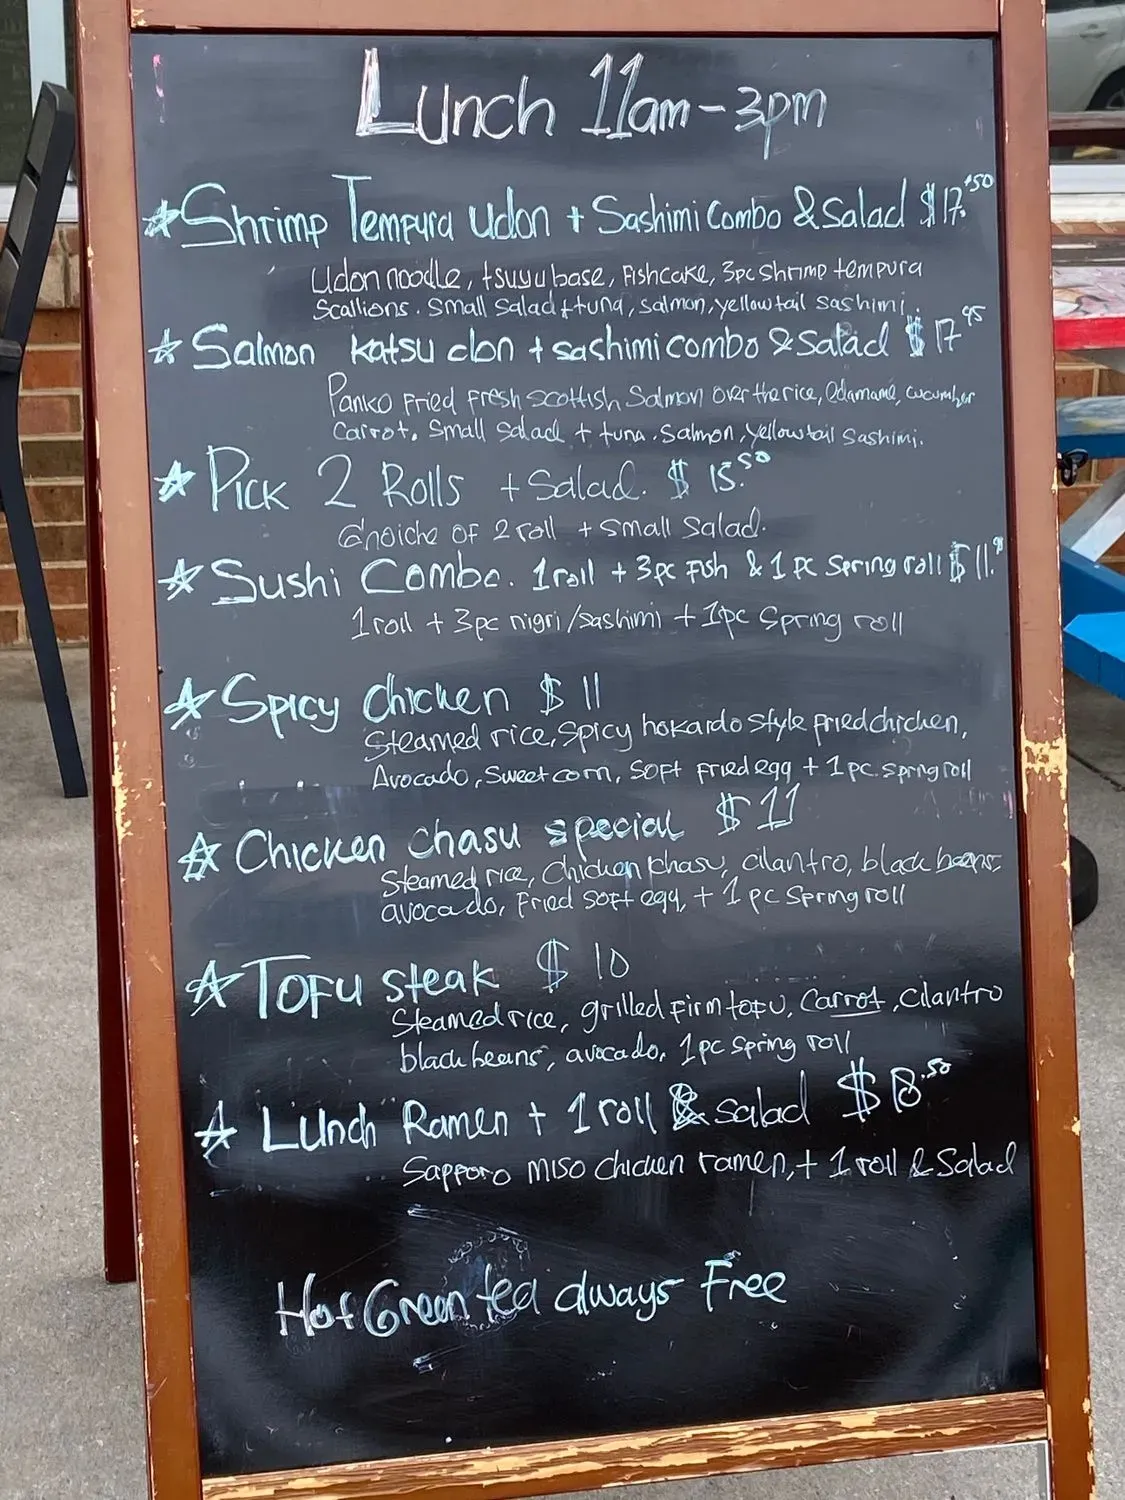 Lunch 11am-3pm
Shrimp Tempura Udon + Sashimi Combo & Salad $17.50
Udon noodle, tsuyu base, Fishcake, 3pc shrimp tempura
Scallions. Small Salad + tuna, salmon, yellowtail sashimi.
Salmon katsu don + sashimi combo & Salad $17.95
Panko Fried Fresh Scottish Salmon over the rice, edamame, cucumber
Carrot. Small Salad + tuna. Salmon, yellowtail Sashimi.
Pick 2 Rolls + Salad. $15.50
Choiche of 2 roll + small salad.
Sushi Combo. 1 roll + 3pc Fish & 1 pc Spring roll $11.
1 roll + 3pc nigri/sashimi + 1pc Spring roll
Spicy chicken $11
Steamed rice, Spicy hokaido style fried chicken,
Avocado, Sweet corn, Soft Fried egg + 1 pc. spring roll
Chicken chasu special $11
Steamed rice, Chicken chasu, cilantro, black beans,
avocado, Fried soft egg, + 1 pc Spring roll
TOFU steak $10
Steamed rice, grilled Firm tofu, Carrot, Cilantro
black beans, avocado, 1pc Spring roll
Lunch Ramen + 1 roll & salad
Sapporo miso chicken ramen, + 1 roll & Salad
Hot Green tea always Free